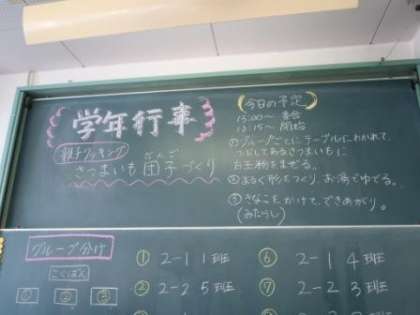 学年行事
親子クッキング
さつまいも団子づくり
だんご
今日の予定
13:00〜 集合
13:15〜 開始
①グループごとに、テーブルにわかれて、
つぶしてあるさつまいもに
白玉粉をまぜる。
②まるく形をつくり、お湯でゆでる。
③きなこをかけて、できあがり。
(みたらし)
グループ分け
こくばん
① ② ③
① 2-1 1班
② 2-2 5班
⑥ 2-1 4班
⑦ 2-2 2班